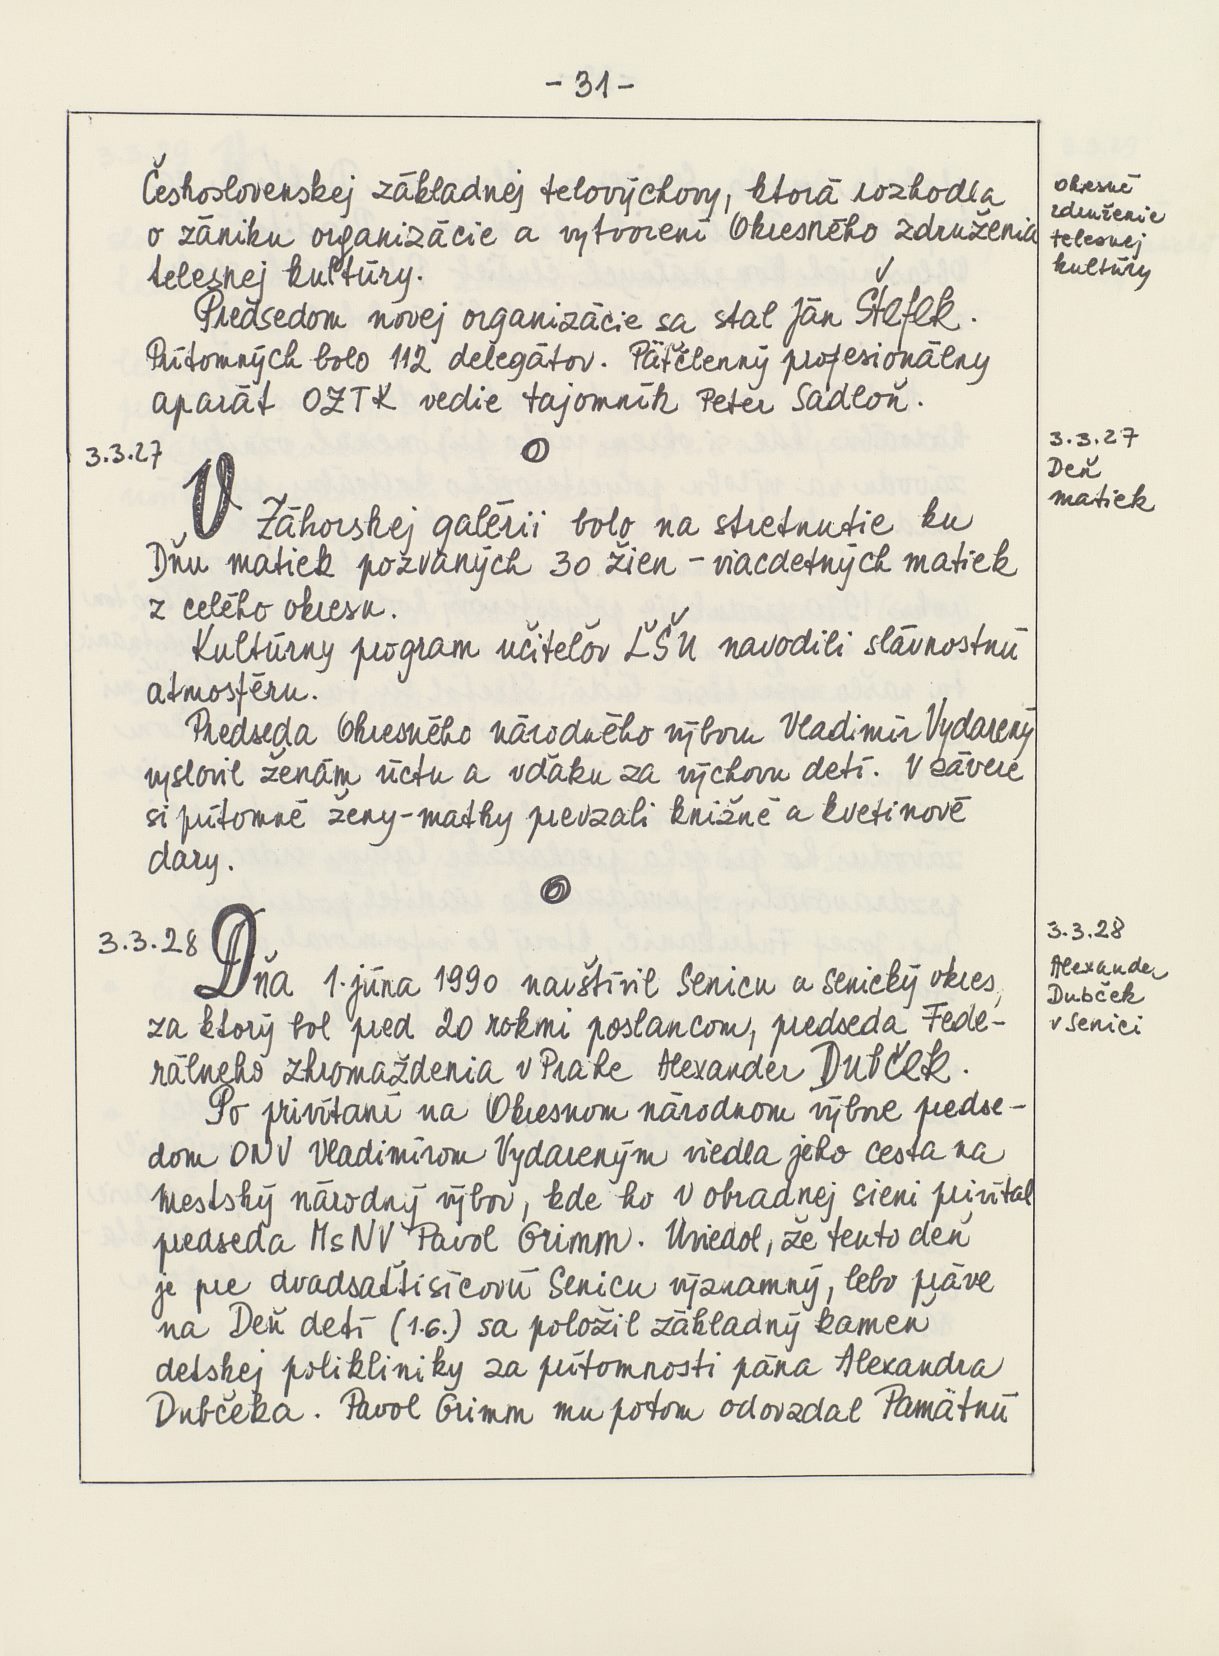 - 31 -
Československej základnej telovýchovy, ktorá rozhodla
o zániku organizácie a vytvorení Okresného združenia
telesnej kultúry.
Okresné
združenie
telesnej
kultúry
Predsedom novej organizácie sa stal Ján Štefek.
Prítomných bolo 112 delegátov. Päťčlenný profesionálny
aparát OZTK vedie tajomník Peter Sadloň.
3.3.27
3.3.27
Deň
matiek
V Záhorskej galérii bolo na stretnutie ku
Dňu matiek pozvaných 30 žien - viacdetných matiek
z celého okresu.
Kultúrny program učiteľov ĽŠU navodili slávnostnú
atmosféru.
Predseda Okresného národného výboru Vladimír Vydarený
vyslovil ženám úctu a vďaku za výchovu detí. V závere
si prítomné ženy-matky prevzali knižné a kvetinové
dary.
3.3.28
3.3.28
Alexander
Dubček
v Senici
Dňa 1. júna 1990 navštívil Senicu a senický okres,
za ktorý bol pred 20 rokmi poslancom, predseda Fede-
rálneho zhromaždenia v Prahe Alexander Dubček.
Po privítaní na Okresnom národnom výbore predse-
dom ONV Vladimírom Vydareným viedla jeho cesta na
Mestský národný výbor, kde ho v obradnej sieni privítal
predseda MsNV Pavol Grimm. Uviedol, že tento deň
je pre dvadsaťtisícovú Senicu významný, lebo práve
na Deň detí (1.6.) sa položil základný kameň
detskej polikliniky za prítomnosti pána Alexandra
Dubčeka. Pavol Grimm mu potom odovzdal Pamätnú